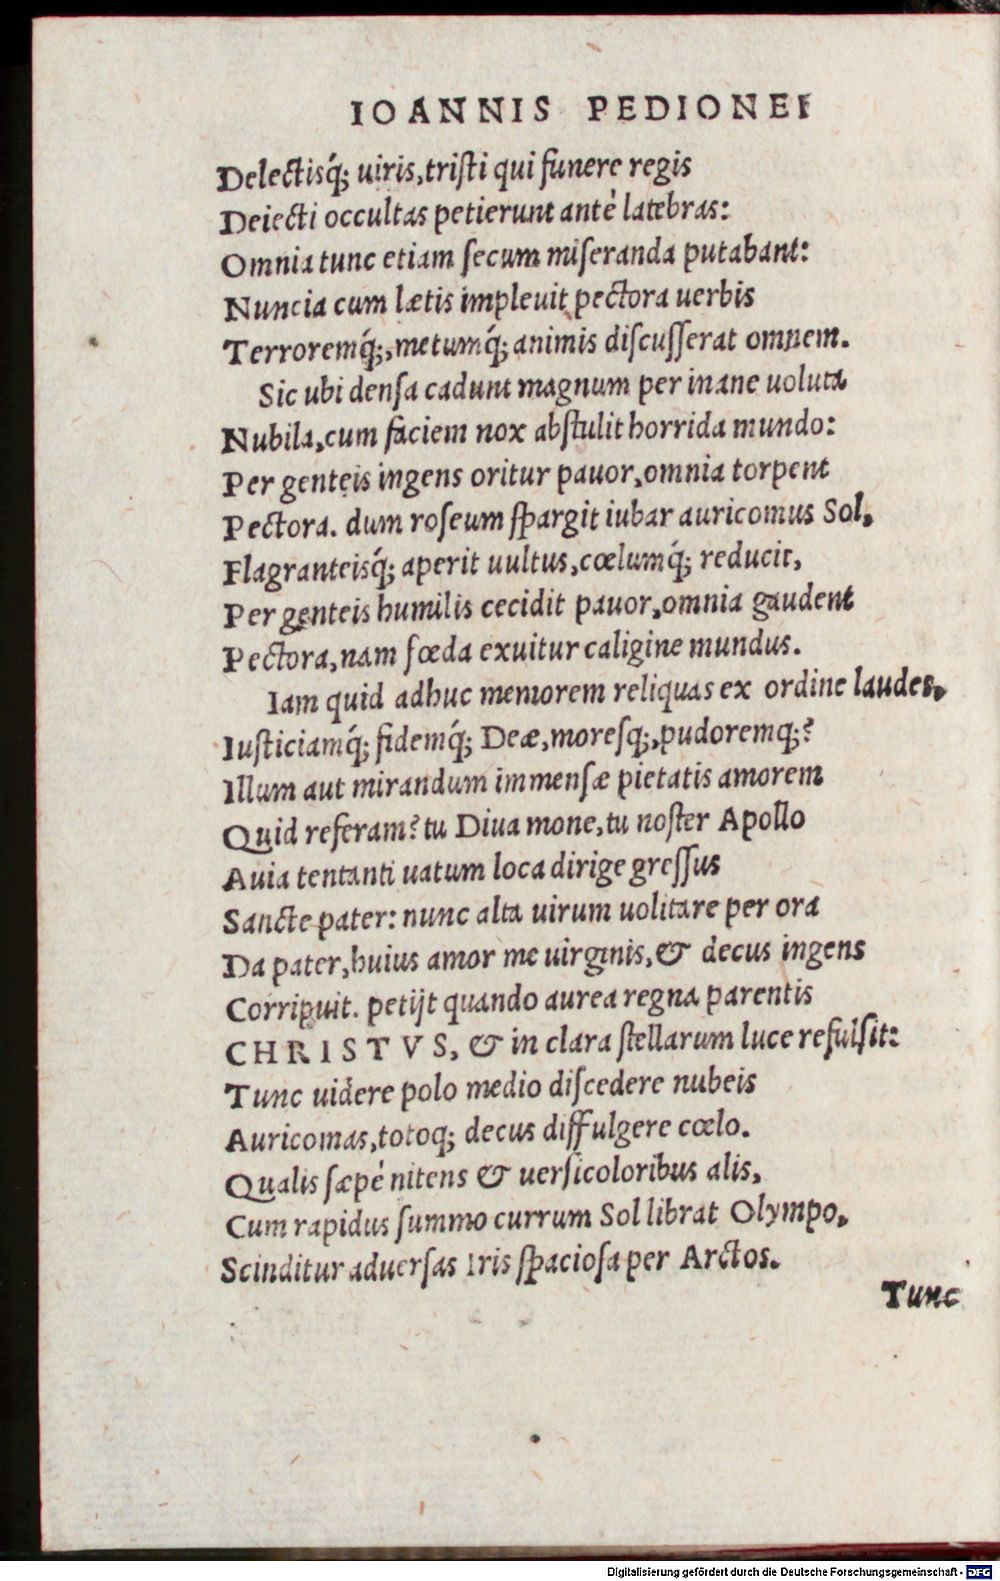 IOANNIS PEDIONEI
Delectisq́; uiris, tristi qui funere regis
Deiecti occultas petierunt antè latebras:
Omnia tunc etiam secum miseranda putabant:
Nuncia cum lætis impleuit pectora uerbis
Terroremq́;, metumq́; animis discusserat omnem.
Sic ubi densa cadunt magnum per inane uoluta
Nubila, cum faciem nox abstulit horrida mundo:
Per genteis ingens oritur pauor, omnia torpent
Pectora. dum roseum spargit iubar auricomus Sol,
Flagranteisq́; aperit uultus, cœlumq́; reducit,
Per genteis humilis cecidit pauor, omnia gaudent
Pectora, nam fœda exuitur caligine mundus.
Iam quid adhuc memorem reliquas ex ordine laudes,
Iusticiamq́; fidemq́; Deæ, moresq;, pudoremq;?
Illum aut mirandum immensæ pietatis amorem
Quid referam? tu Diua mone, tu noster Apollo
Auia tentanti uatum loca dirige gressus
Sancte pater: nunc alta uirum uolitare per ora
Da pater, huius amor me uirginis, & decus ingens
Corripuit. petijt quando aurea regna parentis
CHRISTVS, & in clara stellarum luce refulsit:
Tunc uidere polo medio discedere nubeis
Auricomas, totoq; decus diffulgere cœlo.
Qualis sæpè nitens & uersicoloribus alis,
Cum rapidus summo currum Sol librat Olympo,
Scinditur aduersas Iris spaciosa per Arctos.
Tunc
Digitalisierung gefördert durch die Deutsche Forschungsgemeinschaft - DFG